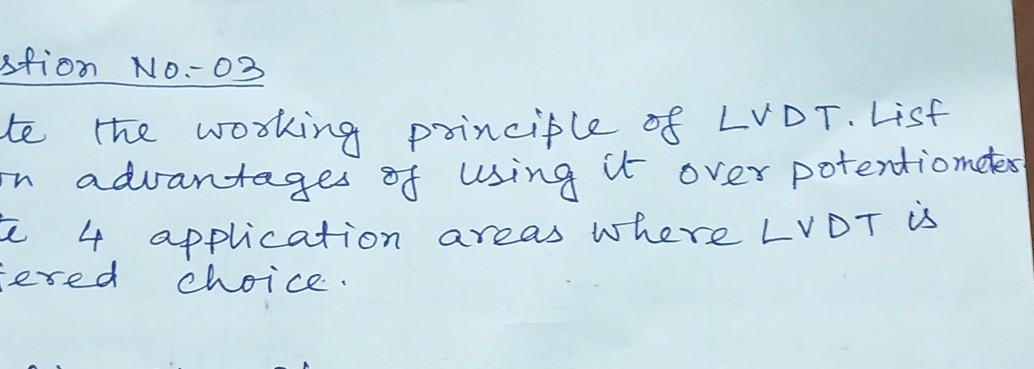 stion No.-03
te the working principle of LVDT. List
n advantages of using it over potentiometer
te 4 application areas where LVDT is
ered choice.